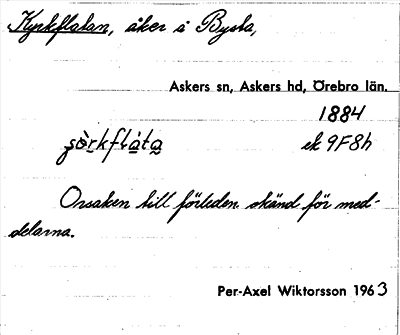 Kyrkflatan, åker å Bysta,
Askers sn, Askers hd, Örebro län.
1884
ek 9F8h
Orsaken till förleden okänd för med-
delarna.
Per-Axel Wiktorsson 1963